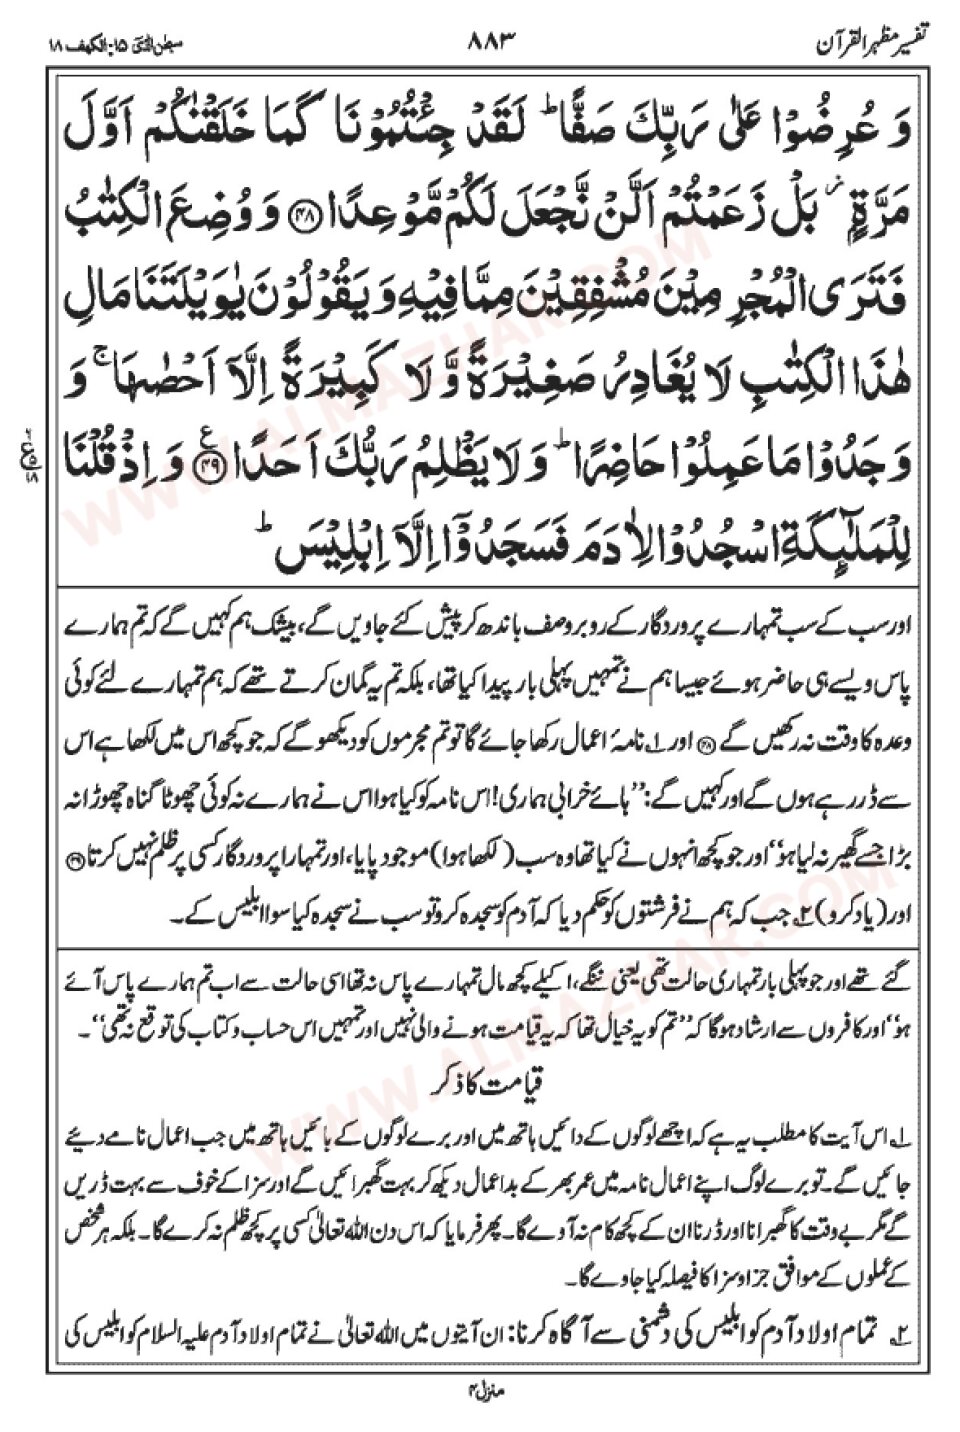 تفسیر مظہر القرآن ۸۸۳ سبحٰن الذی ۱۵: الکہف ۱۸
وَ عُرِضُوۡا عَلٰی رَبِّكَ صَفًّا ؕ لَقَدۡ جِئۡتُمُوۡنَا كَمَا خَلَقۡنٰكُمۡ اَوَّلَ
مَرَّةٍۭ ۫ بَلۡ زَعَمۡتُمۡ اَلَّنۡ نَّجۡعَلَ لَكُمۡ مَّوۡعِدًا ﴿۴۸﴾ وَ وُضِعَ الۡكِتٰبُ
فَتَرَی الۡمُجۡرِمِیۡنَ مُشۡفِقِیۡنَ مِمَّا فِیۡهِ وَ یَقُوۡلُوۡنَ یٰوَیۡلَتَنَا مَالِ
هٰذَا الۡكِتٰبِ لَا یُغَادِرُ صَغِیۡرَةً وَّ لَا كَبِیۡرَةً اِلَّاۤ اَحۡصٰهَا ۚ وَ
وَجَدُوۡا مَا عَمِلُوۡا حَاضِرًا ؕ وَ لَا یَظۡلِمُ رَبُّكَ اَحَدًا ﴿۴۹﴾ ع وَ اِذۡ قُلۡنَا
لِلۡمَلٰٓئِكَةِ اسۡجُدُوۡا لِاٰدَمَ فَسَجَدُوۡۤا اِلَّاۤ اِبۡلِیۡسَ ؕ
اور سب کے سب تمہارے پروردگار کے روبرو صف باندھ کر پیش کئے جاویں گے، بیشک ہم کہیں گے کہ تم ہمارے
پاس ویسے ہی حاضر ہوئے جیسا ہم نے تمہیں پہلی بار پیدا کیا تھا، بلکہ تم یہ گمان کرتے تھے کہ ہم تمہارے لئے کوئی
وعدہ کا وقت نہ رکھیں گے ﴿۴۸﴾ اور ۱؎ نامۂ اعمال رکھا جائے گا تو تم مجرموں کو دیکھو گے کہ جو کچھ اس میں لکھا ہے اس
سے ڈر رہے ہوں گے اور کہیں گے: ’’ہائے خرابی ہماری! اس نامہ کو کیا ہوا اس نے ہمارے نہ کوئی چھوٹا گناہ چھوڑا نہ
بڑا جسے گھیر نہ لیا ہو‘‘ اور جو کچھ انہوں نے کیا تھا وہ سب (لکھا ہوا) موجود پایا، اور تمہارا پروردگار کسی پر ظلم نہیں کرتا ﴿۴۹﴾
اور (یاد کرو) ۲؎ جب کہ ہم نے فرشتوں کو حکم دیا کہ آدم کو سجدہ کرو تو سب نے سجدہ کیا سوا ابلیس کے۔
گئے تھے اور جو پہلی بار تمہاری حالت تھی یعنی ننگے، اکیلے کچھ مال تمہارے پاس نہ تھا اسی حالت سے اب تم ہمارے پاس آئے
ہو‘‘ اور کافروں سے ارشاد ہوگا کہ ’’تم کو یہ خیال تھا کہ یہ قیامت ہونے والی نہیں اور تمہیں اس حساب و کتاب کی توقع نہ تھی‘‘۔
قیامت کا ذکر
۱؎ اس آیت کا مطلب یہ ہے کہ اچھے لوگوں کے دائیں ہاتھ میں اور برے لوگوں کے بائیں ہاتھ میں جب اعمال نامے دیئے
جائیں گے۔ تو برے لوگ اپنے اعمال نامہ میں عمر بھر کے بد اعمال دیکھ کر بہت گھبرائیں گے اور سزا کے خوف سے بہت ڈریں
گے مگر بے وقت کا گھبرانا اور ڈرنا ان کے کچھ کام نہ آوے گا۔ پھر فرمایا کہ اس دن اللہ تعالیٰ کسی پر کچھ ظلم نہ کرے گا۔ بلکہ ہر شخص
کے عملوں کے موافق جزا و سزا کا فیصلہ کیا جاوے گا۔
۲؎ تمام اولاد آدم کو ابلیس کی دشمنی سے آگاہ کرنا: ان آیتوں میں اللہ تعالیٰ نے تمام اولاد آدم علیہ السلام کو ابلیس کی
منزل ۴
WWW.ALMAZHAR.COM
WWW.ALMAZHAR.COM